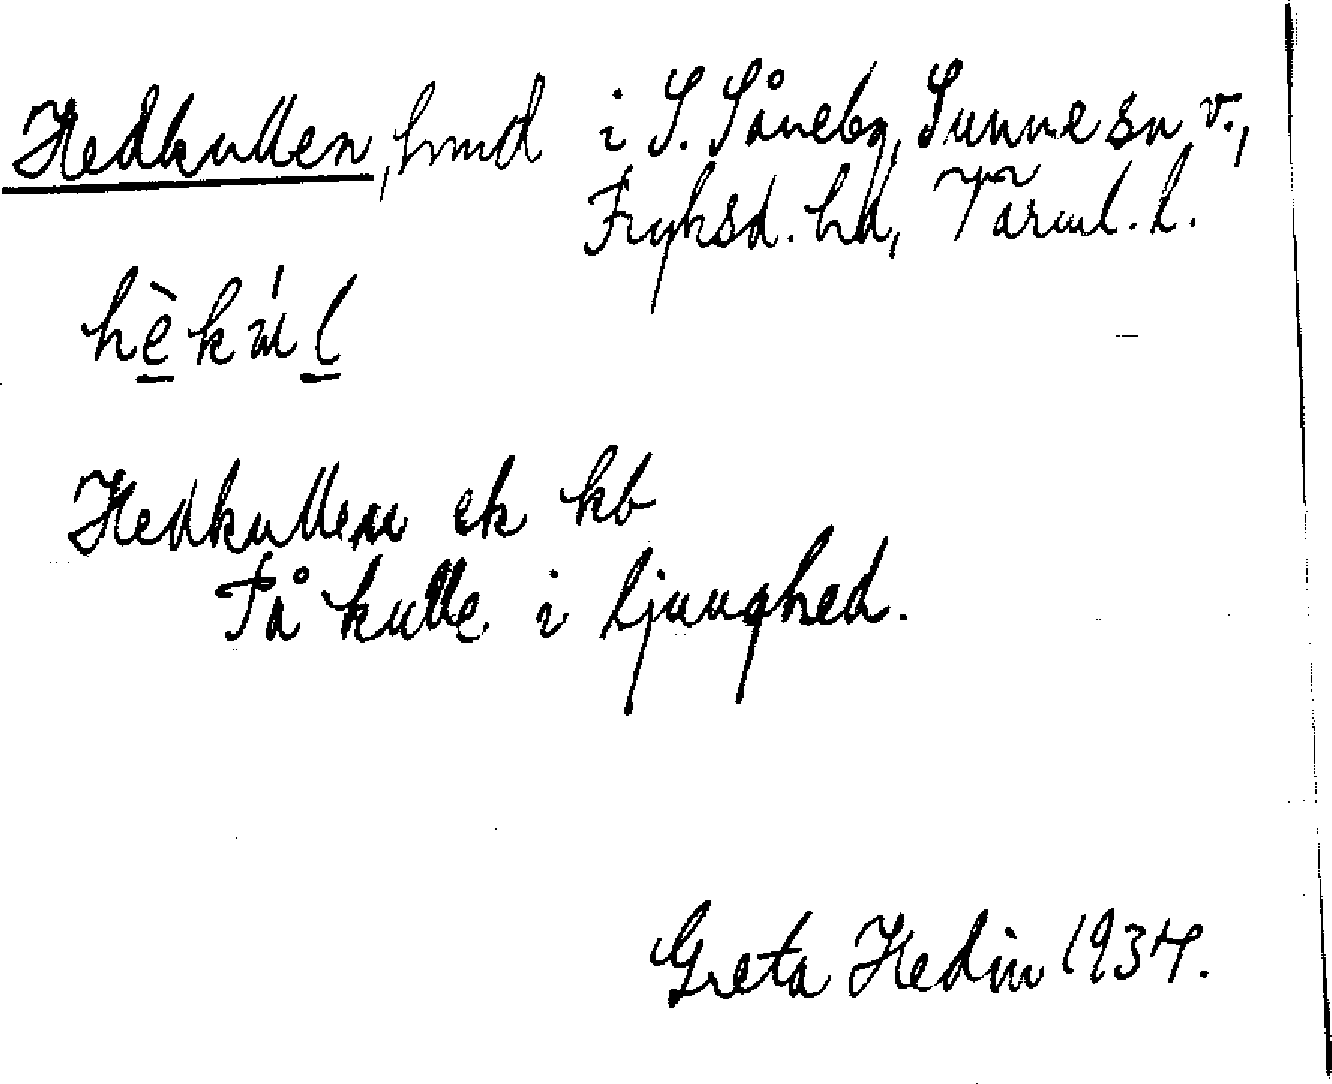 Hedkullen, hmd i S. Såneby, Sunne sn v.,
Fryksd. hd, Värml. l.
hèkul
Hedkullen ek kb
På kulle i ljunghed.
Greta Hedin 1934.